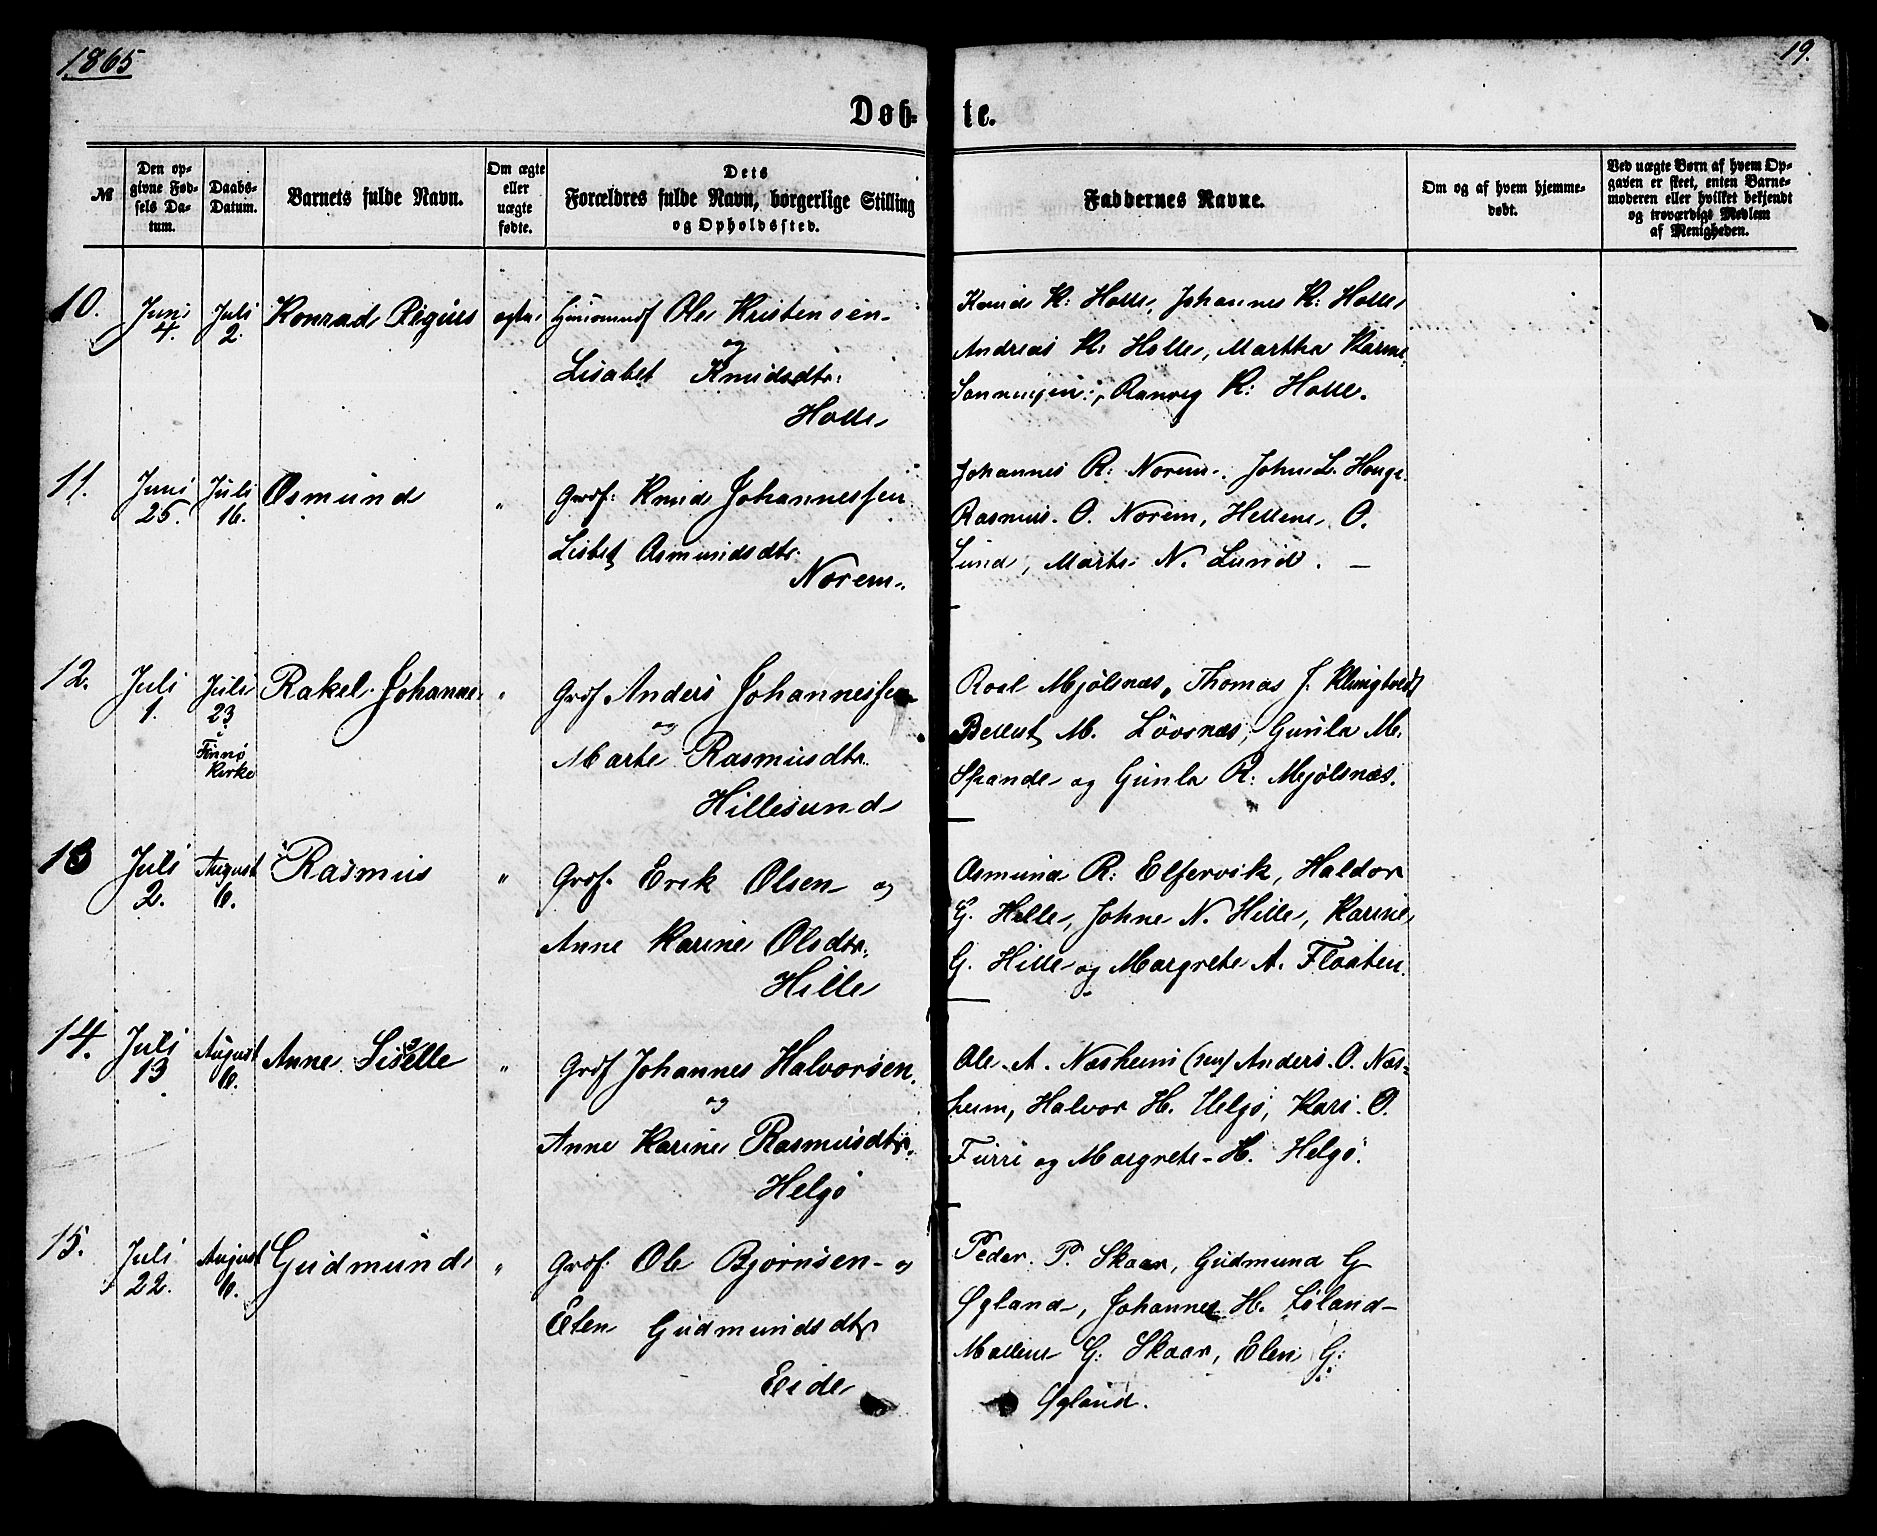 1865
19.
Døb-te.
№
Den op-
givne Fød-
sels Da-
tum.
Daabs-
Datum.
Barnets fulde Navn.
Om ægte
eller
uægte
fødte.
Dets
Forældres fulde Navn, borgerlige Stilling
og Opholdssted.
Faddernes Navne.
Om og af hvem hjemme-
døbt.
Ved uægte Børn af hvem Op-
gaven er skeet, enten Barne-
moderen eller hvilket bekjendt
og troværdigt Medlem
af Menigheden.
10.
Juni
4.
Juli
2.
Konrad Rigius
ægte
Ole Kristensen
og
Lisabet Knudsdtr:
Holle
Knud K: Holle, Johannes K: Holle
Andreas K: Holle, Martha Karine
Ranveg K: Holle.
11.
Juni
25.
Juli
16.
Osmund
"
Grdf: Knud Johannessen
Lisbet Osmundsdtr:
Norem.
Johannes R: Norem, John L. Houge
Rasmus O. Norem, Hellene O.
Lund, Marte N. Lund. —
12.
Juli
1.
Juli
23
i
Finnø
Kirke
Rakel Johanne
"
Grdf Anders Johannessen
og
Marte Rasmusdtr.
Hillesund
Roal Mjølsnæs, Thomas J. Klungtvedt
Bellest M. Løvsnæs, Gunla M.
Strande og Gunla R: Mjølsnæs.
13
Juli
2.
August
6.
Rasmus
"
Grdf. Erik Olsen og
Anne Karine Olsdtr.
Hille
Osmund R: Elfervik, Haldor
G. Helle, Johne N. Hille, Karine
G. Hille og Margrete A. Flaaten.
14.
Juli
13
August
6.
Anne Siselle
"
Grdf Johannes Halvorsen
og
Anne Karine Rasmusdtr.
Helgø
Ole A. Næsheim (sen) Anders O. Næs-
heim, Halvor H. Helgø, Kari O.
Furre og Margrete H. Helgø.
15.
Juli
22.
August
6.
Gudmund
"
Grdf: Ole Bjørnsen og
Elen Gudmundsdtr
Eide
Peder P. Skaar, Gudmund G
Øgland, Johannes H. Løland
Mallene G: Skaar, Elen G:
Øgland.